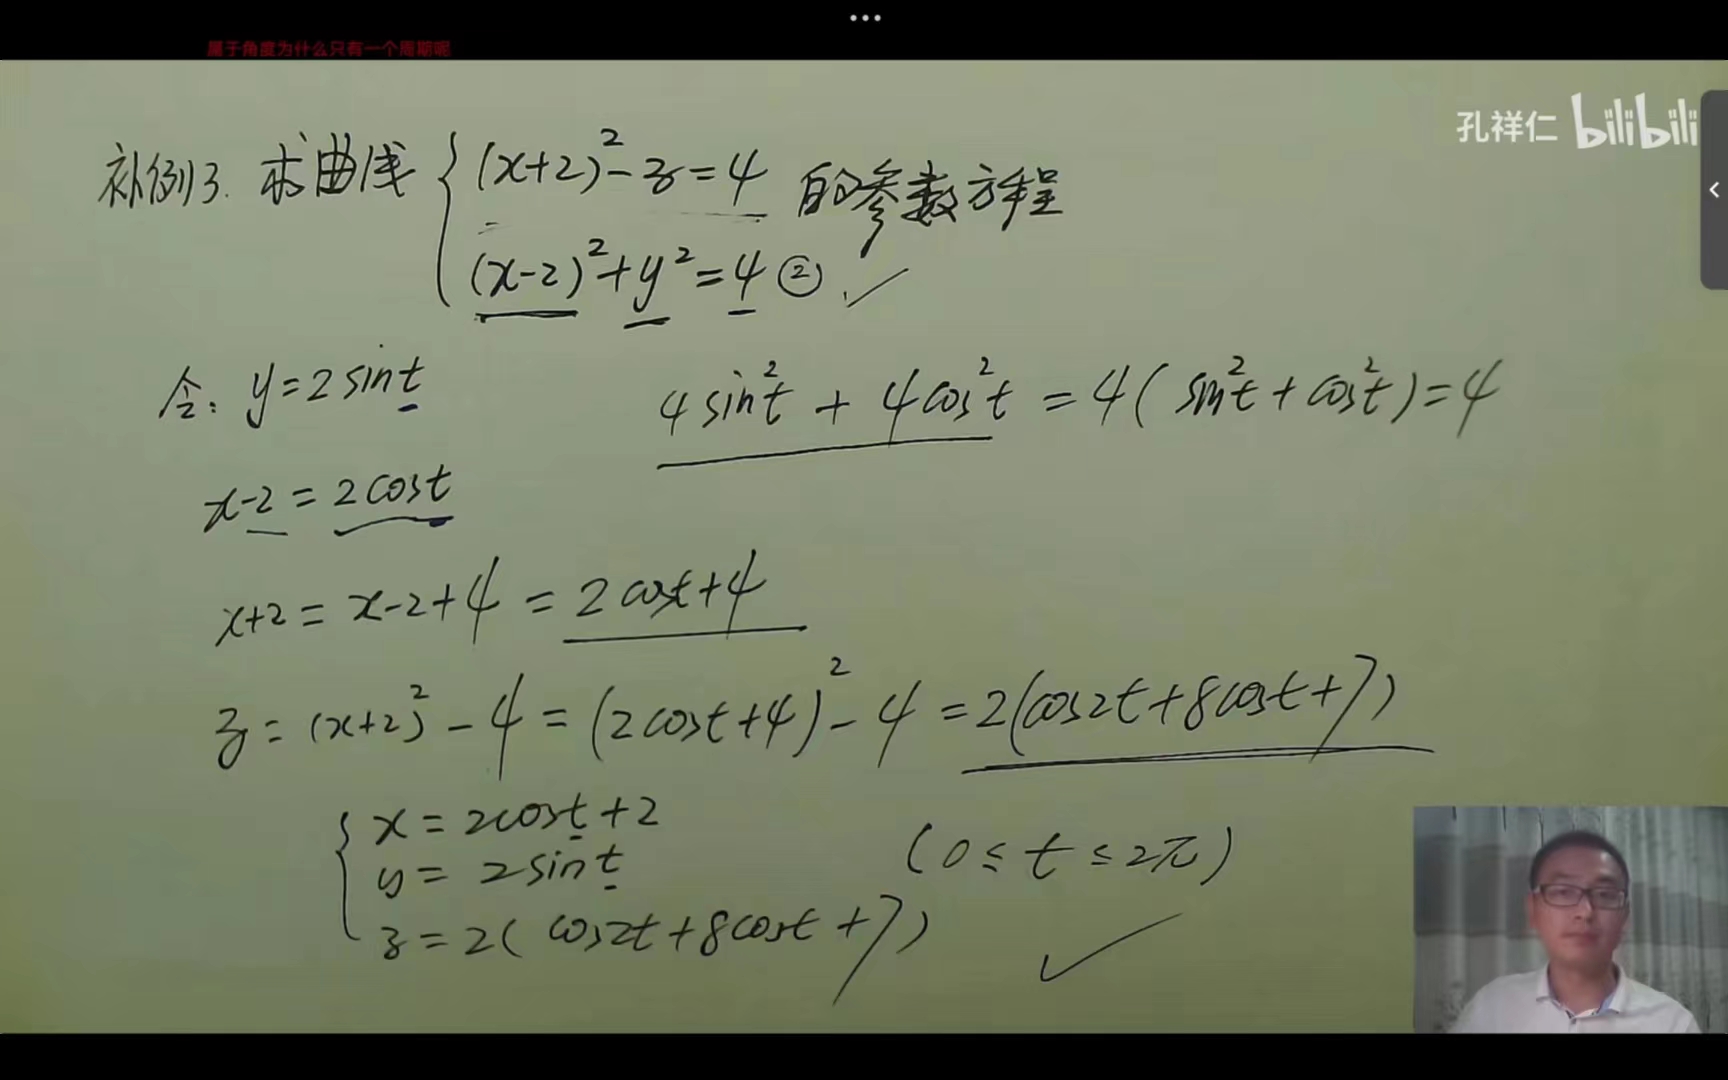 属于角度为什么只有一个周期呢
孔祥仁 bilibili
补例3. 求曲线 { (x+2)²-z=4 的参数方程
(x-2)²+y²=4 ②
令: y=2sint 4sin²t + 4cos²t = 4(sin²t+cos²t)=4
x-2=2cost
x+2=x-2+4=2cost+4
z=(x+2)²-4=(2cost+4)²-4=2(cos2t+8cost+7)
{ x=2cost+2
y=2sint (0≤t≤2π)
z=2(cos2t+8cost+7)